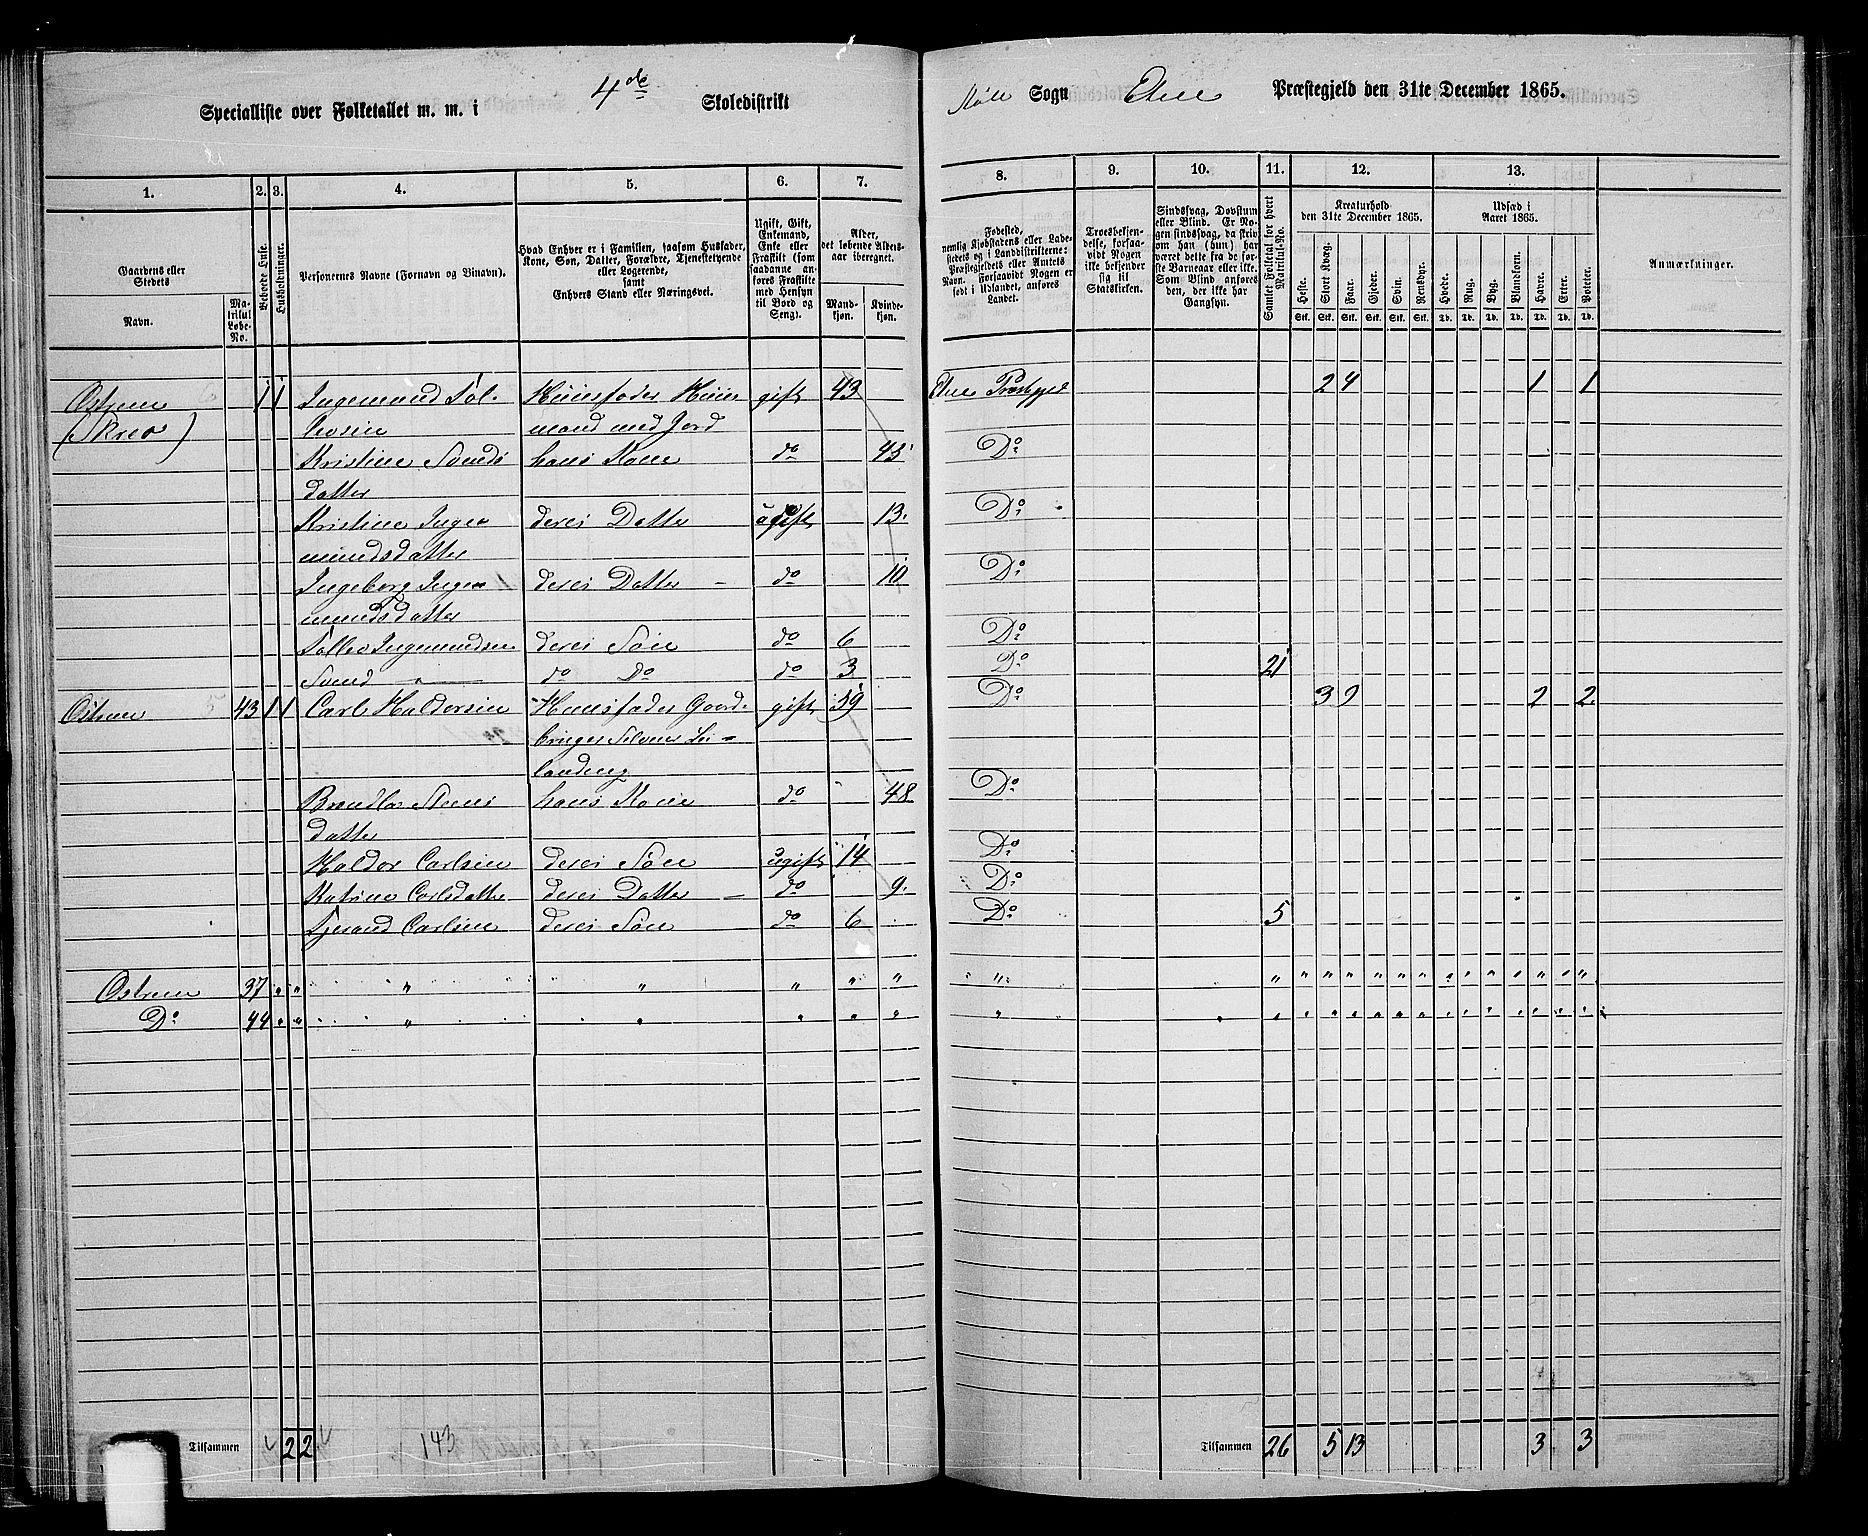 Specialliste over Folketallet m. m. i 4de Skoledistrikt
Sogn Etne Præstegjeld den 31te December 1865.
1. 2. 3. 4. 5. 6. 7.
8. 9. 10. 11. 12. 13.
Gaardens eller Stedets
Navn.
Matrikul Løbe-No.
Beboede Huse.
Husholdninger.
Personernes Navne (Fornavn og Tilnavn).
Hvad Enhver er i Familien, saasom Husfader,
Kone, Søn, Datter, Forældre, Tjenestetyende
eller Logerende,
samt
Enhvers Stand eller Næringsvei.
Ugift, Gift,
Enkemand,
Enke eller
Fraskilt (som
saadanne anføres
Fraskilte
med Hensyn
til Bord og
Seng).
Alder,
det løbende Aldersaar
iberegnet.
Mandkjøn.
Kvindekjøn.
Fødested,
nemlig Kjøbstadens eller Ladestedets
og i Landdistrikterne:
Præstegjeldets eller Amtets
Navn. Forsaavidt Nogen er
født i Udlandet, anføres
Landet.
Troesbekjendelse,
forsaavidt
Nogen
ikke bekjender
sig til
Statskirken.
Sindssvag, Døvstum
eller Blind. Er Nogen
sindssvag, da skrives
om han (hun) har
været dette fra de første
Barneaar eller ikke.
Som Blind anføres
den, der ikke har
Gangsyn.
Samlet Folketal for hvert Matrikul-No.
Kreaturhold
den 31te December 1865.
Heste. Stort Kvæg. Faar. Gjeder. Svin. Rensdyr.
Stk. Stk. Stk. Stk. Stk. Stk.
Udsæd i
Aaret 1865.
Hvede. Rug. Byg. Blandkorn. Havre. Erter. Poteter.
Td. Td. Td. Td. Td. Td. Td.
Anmærkninger.
Østrem 1 1 Ingemund Tøl- Huusfader Huus gift 43 Etne Præstegjd 2 4 1 1
levsen mand med Jord
Kristine Svends hans Kone do 45 Do
datter
Kristine Inge deres Datter ugift 13. Do
mundsdatter
Ingeborg Inge deres Datter - do 10 Do
mundsdatter
Tøllev Ingemundsen deres Søn do 6 Do
Svend " do Do do 3 Do 21
Østrem 43 1 1 Carl Haldorsen Huusfader Gaard- gift 39 Do 3 9 2 2.
bruger
lænding
datter hans Kone do 48 Do
Haldor Carlsen deres Søn ugift 14 Do
Katrine Carlsdatter deres Datter - do 9. Do
Carlsen deres Søn do 6 Do 5
Østrem 37 " " " " " " " " " " " " " " " " " " " " " " "
Do 44 " " " " " " " " " " " " " " " " " " " " " " " "
Tilsammen 2 2 143
Tilsammen 26 5 13 3 3